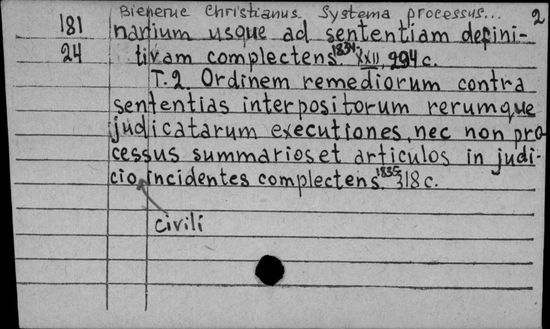 Bienerue Christianus. Systema processus... 2
181 narium usque ad sententiam defini-
24 tivam complectens. 1834. XXII, 294 c.
T. 2. Ordinem remediorum contra
sententias interpositorum rerumque
judicatarum executiones, nec non pro
cessus summarios et articulos in judi-
cio incidentes complectens. 1835. 318 c.
civili